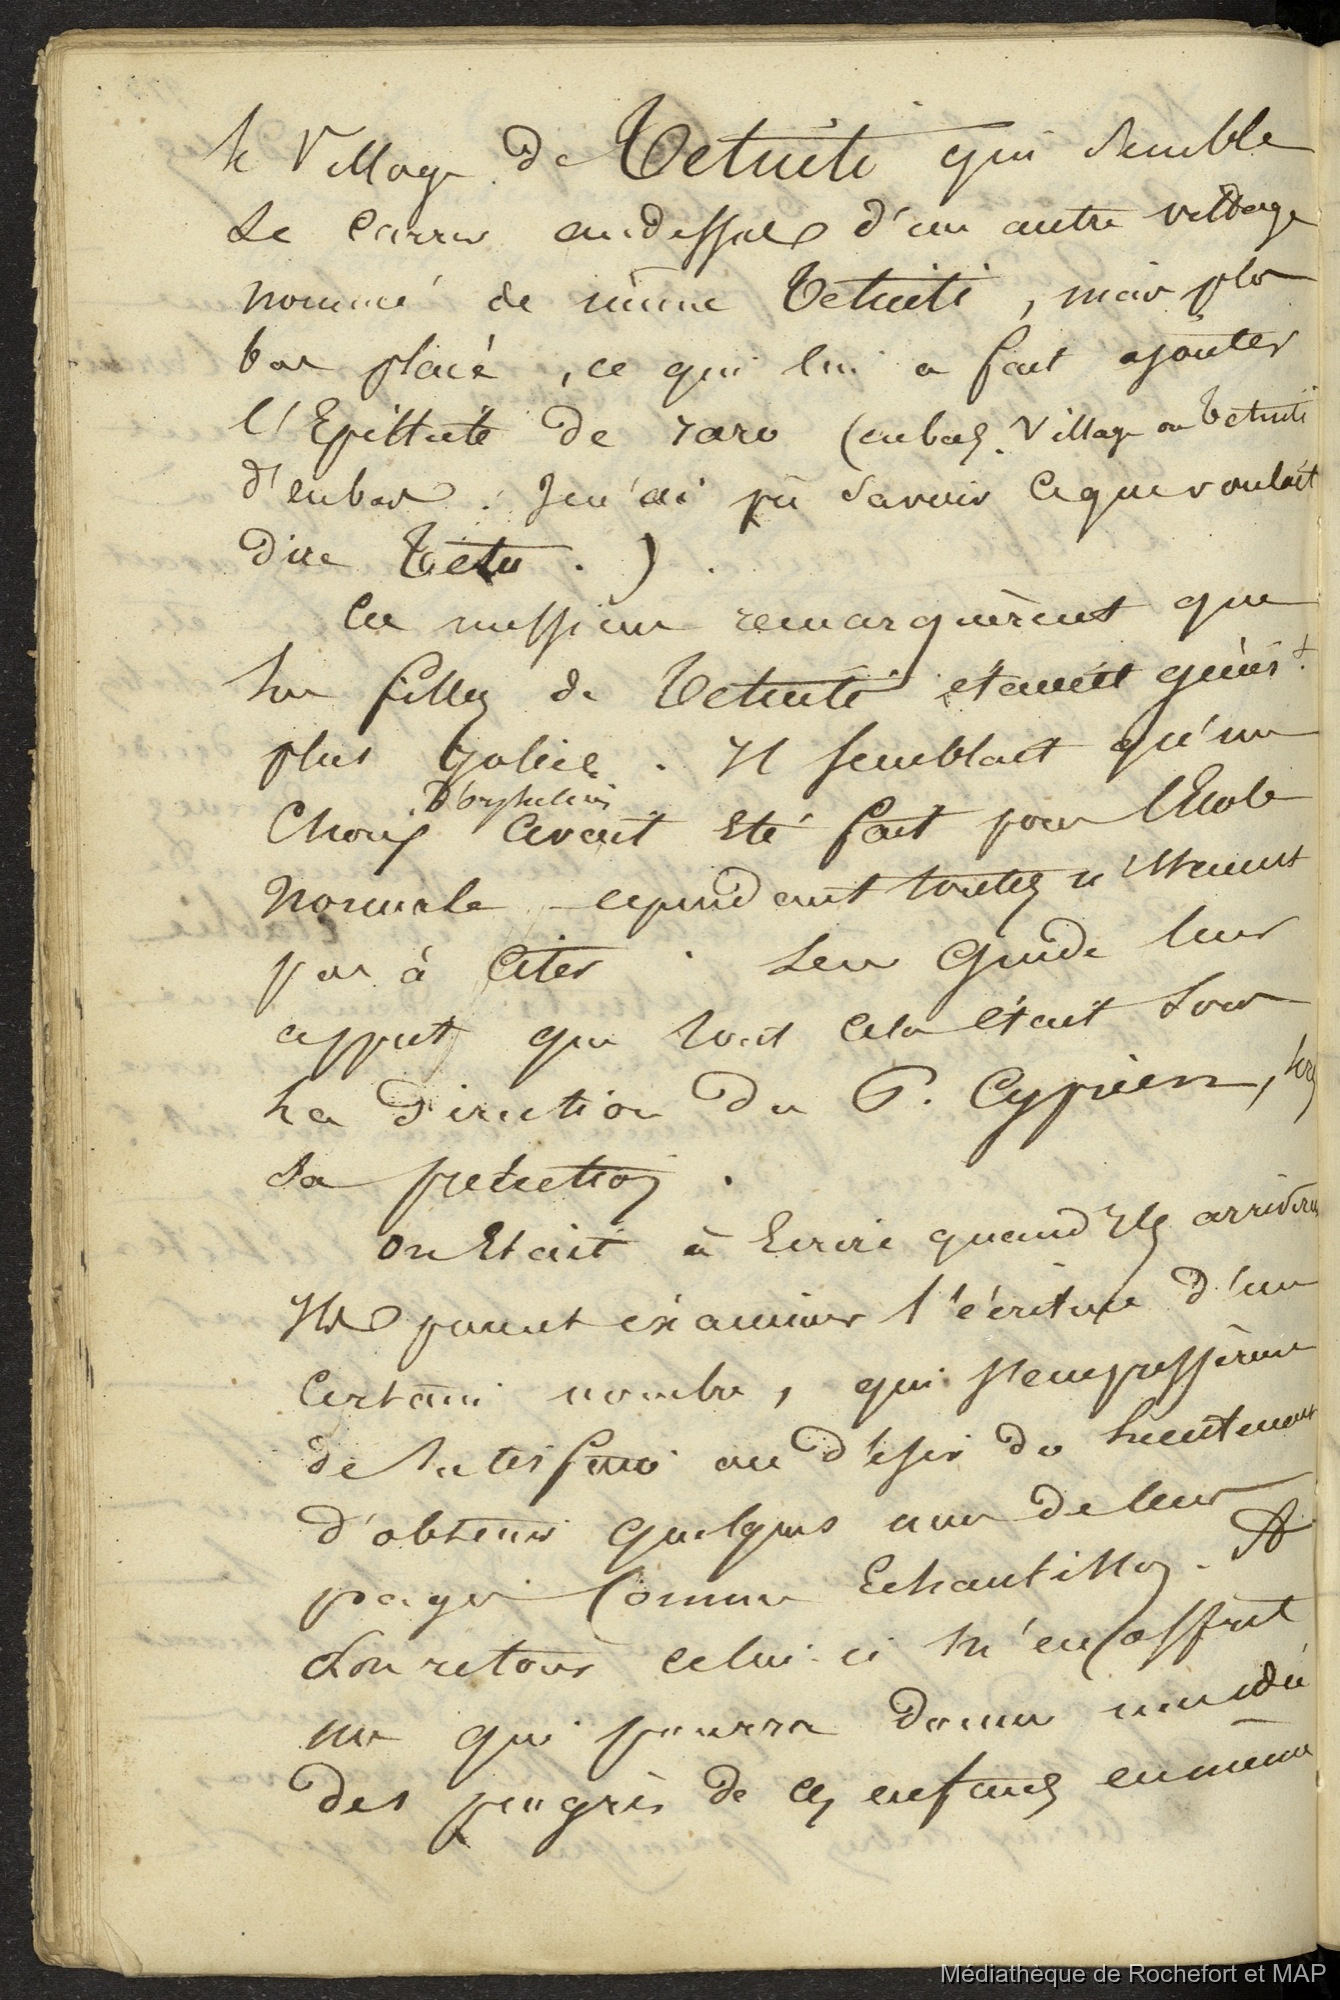 le Village de Tetuiti qui semble
se carrer audessus d'un autre village
nommé de même Tetuiti, mais plus
bas placé, ce qui lui a fait ajouter
l'Epithète de raro (enbas. Village ou Tetuiti
d'enbas. Je n'ai pû savoir ce que voulait
dire Tetu.).
Ces messieurs remarquèrent que
les filles de Tetuiti étaient génér.t
plus jolies. Il semblait qu'un
D'orphelins
Choix avait été fait pour l'Ecole
normale cependant toutes n'étaient
pas à citer. Leur Guide leur
apprit que tout cela était sous
la Direction du P. Cyprien,
sa protection.
on Etait à Ecrire quand Ils arrivèrent
Ils purent examiner l'écriture d'un
Certain nombre, qui s'empressèrent
de satisfaire au désir du lieutenant
d'obtenir quelques unes de leurs
pages Comme Echantillon. A
son retour celui-ci m'en offrit
une qui pourra donner une idée
des progrès de ces enfans en même
Médiathèque de Rochefort et MAP